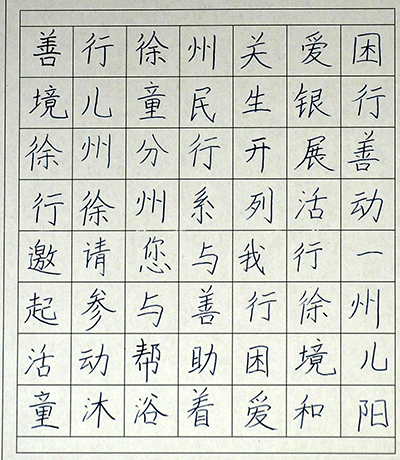 善行徐州关爱困
境儿童民生银行
徐州分行开展善
行徐州系列活动
邀请您与我行一
起参与善行徐州
活动帮助困境儿
童沐浴着爱和阳